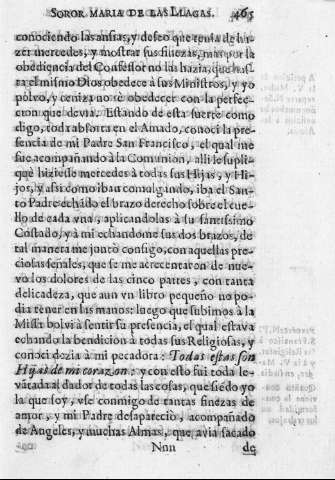 SOROR MARIA DE LAS LLAGAS. 465
conociendo las ansias, y deseo que tenia de ha-
zer mercedes, y mostrar sus finezas, mas por la
obediencia del Confessor no las hazia, que has-
ta el mismo Dios obedece à sus Ministros, y yo
polvo, y ceniza no sè obedecer con la perfec-
cion que devia. Estando de esta suerte como
digo, toda absorta en el Amado, conocì la pre-
sencia de mi Padre San Francisco, el qual me
fue acompañando à la Comunion, alli le supli-
què hiziesse mercedes à todas sus Hijas, y Hi-
jos, y asi como iban comulgando, iba el San-
to Padre echãdo el brazo derecho sobre el cue-
llo de cada vna, aplicandolas à su santissimo
Costado, y à mi echandome sus dos brazos, de
tal manera me juntò consigo, con aquellas pre-
ciosas señales, que se me acrecentaron de nue-
vo los dolores de las cinco partes, con tanta
delicadeza, que aun vn libro pequeño no po-
dia tener en las manos: luego que subimos à la
Missa bolvi à sentir su presencia, el qual estava
echando la bendicion à todas sus Religiosas, y
conocì dezia à mi pecadora: Todas estas son
Hijas de mi corazon: y con esto fui toda le-
vãtada al dador de todas las cosas, que siẽdo yo
la que soy, vse conmigo de tantas finezas de
amor, y mi Padre desapareciò, acompañado
de Angeles, y muchas Almas, que avia sacado
Nnn de